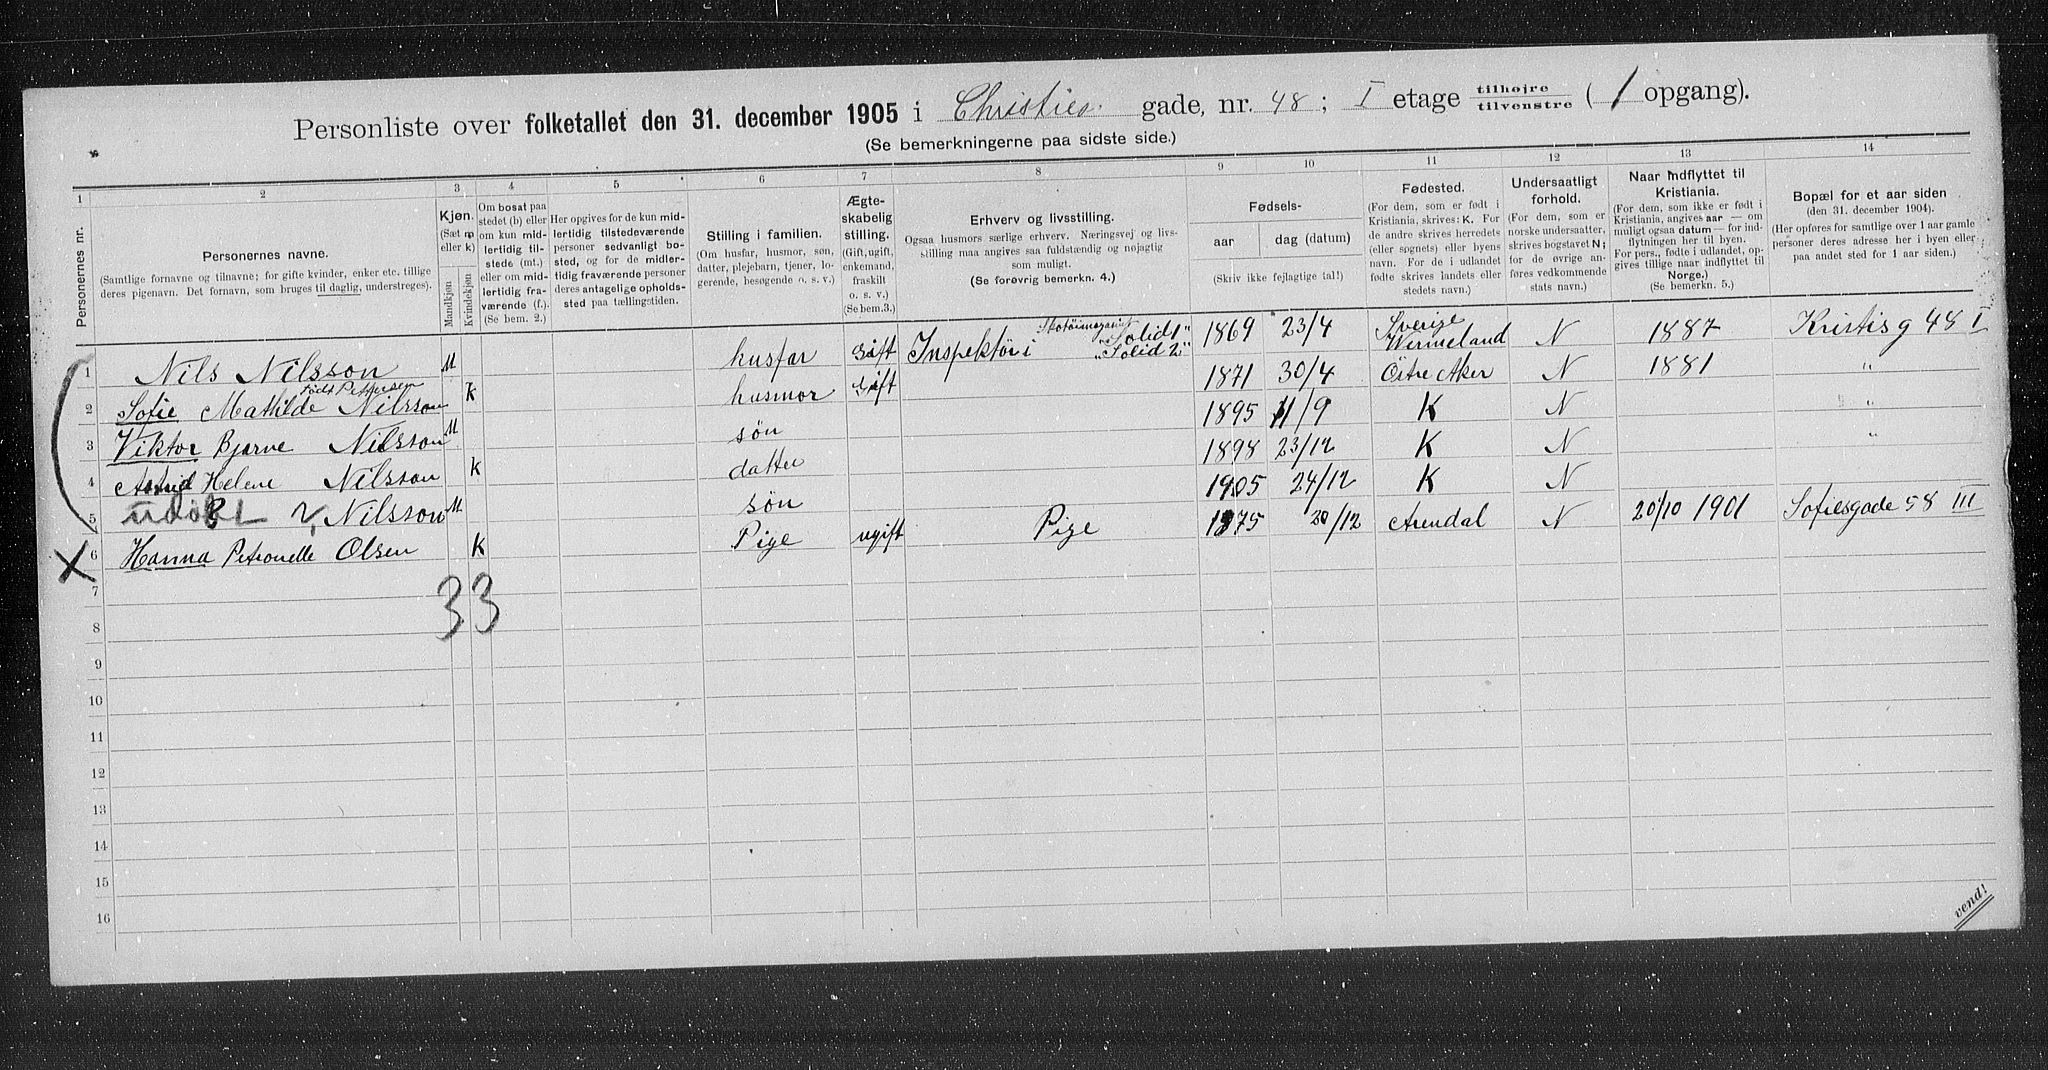 Personliste over folketallet den 31. december 1905 i Christies gade, nr. 48; I etage tilhøjre tilvenstre ( 1 opgang).
(Se bemerkningerne paa sidste side.)
1 2 3 4 5 6 7 8 9 10 11 12 13 14
Personernes nr.
Personernes navne.
(Samtlige fornavne og tilnavne; for gifte kvinder, enker etc. tillige
deres pigenavn. Det fornavn, som bruges til daglig, understreges).
Kjøn.
(Sæt m
eller k)
Mandkjøn
Kvindekjøn
Om bosat paa
stedet (b) eller
om kun mid-
lertidig til-
stede (mt.)
eller om mid-
lertidig fra-
værende (f.).
(Se bem. 2.)
Her opgives for de kun mid-
lertidig tilstedeværende
personer sedvanlig bo-
sted, og for de midler-
tidig fraværende personer
deres antagelige opholds-
sted paa tællingstiden.
Stilling i familien.
(Om husfar, husmor, søn,
datter, plejebarn, tjener, lo-
gerende, besøgende o. s. v.)
Ægte-
skabelig
stilling.
(Gift, ugift,
enkemand,
fraskilt
o. s. v.)
(Se bem.3.)
Erhverv og livsstilling.
Ogsaa husmors særlige erhverv. Næringsvej og livs-
stilling maa angives saa fuldstændig og nøjagtig
som muligt.
(Se forøvrig bemerkn. 4.)
Fødsels-
aar dag (datum)
(Skriv ikke fejlagtige tal!)
Fødested.
(For dem, som er født i
Kristiania, skrives: K. For
de andre skrives herredets
(eller sognets) eller byens
navn. For de i udlandet
fødte skrives landets eller
stedets navn.)
Undersaatligt
forhold.
(For dem, som er
norske undersaatter,
skrives bogstavet N;
for de øvrige an-
føres vedkommende
stats navn.)
Naar indflyttet til
Kristiania.
(For dem, som ikke er født i
Kristiania, angives aar — om
muligt ogsaa datum — for ind-
flytningen her til byen.
For pers., fødte i udlandet, op-
gives tillige naar indflyttet til
Norge.)
(Se bemerkn. 5.)
Bopæl for et aar siden
(den 31. december 1904).
(Her opføres for samtlige over 1 aar gamle
personer deres adresse her i byen eller
paa andet sted for 1 aar siden.)
1 Nils Nilsson M husfar Gift Inspektør i Skotøimagasinet "Solid 1" "Solid 2" 1869 23/4 Sverige Wermeland N 1887 Kristis g 48 I
født Pettersen
2 Sofie Mathilde Nilsson K husmor Gift 1871 30/4 Östre Aker N 1881 "
3 Viktor Bjarne Nilsson M søn 1895 11/9 K N "
4 Astrid Helene Nilsson K datter 1898 23/12 K N "
5 udøbt Nilsson M søn 1905 24/12 K N
6 Hanna Petronelle Olsen K Pige ugift Pige 1875 20/12 Arendal N 20/10 1901 Sofiesgade 58 III
7
33
8
9
10
11
12
13
14
15
16
vend!